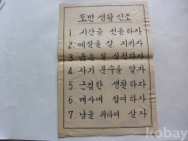 토민 생활 신조
1 시간을 선용하자
2 예절을 잘 지키자
3 실천하자
4 자기 분수를 알자
5 근검한 생활하자
6 매사에 참여하자
7 남을 위하여 살자
kobay